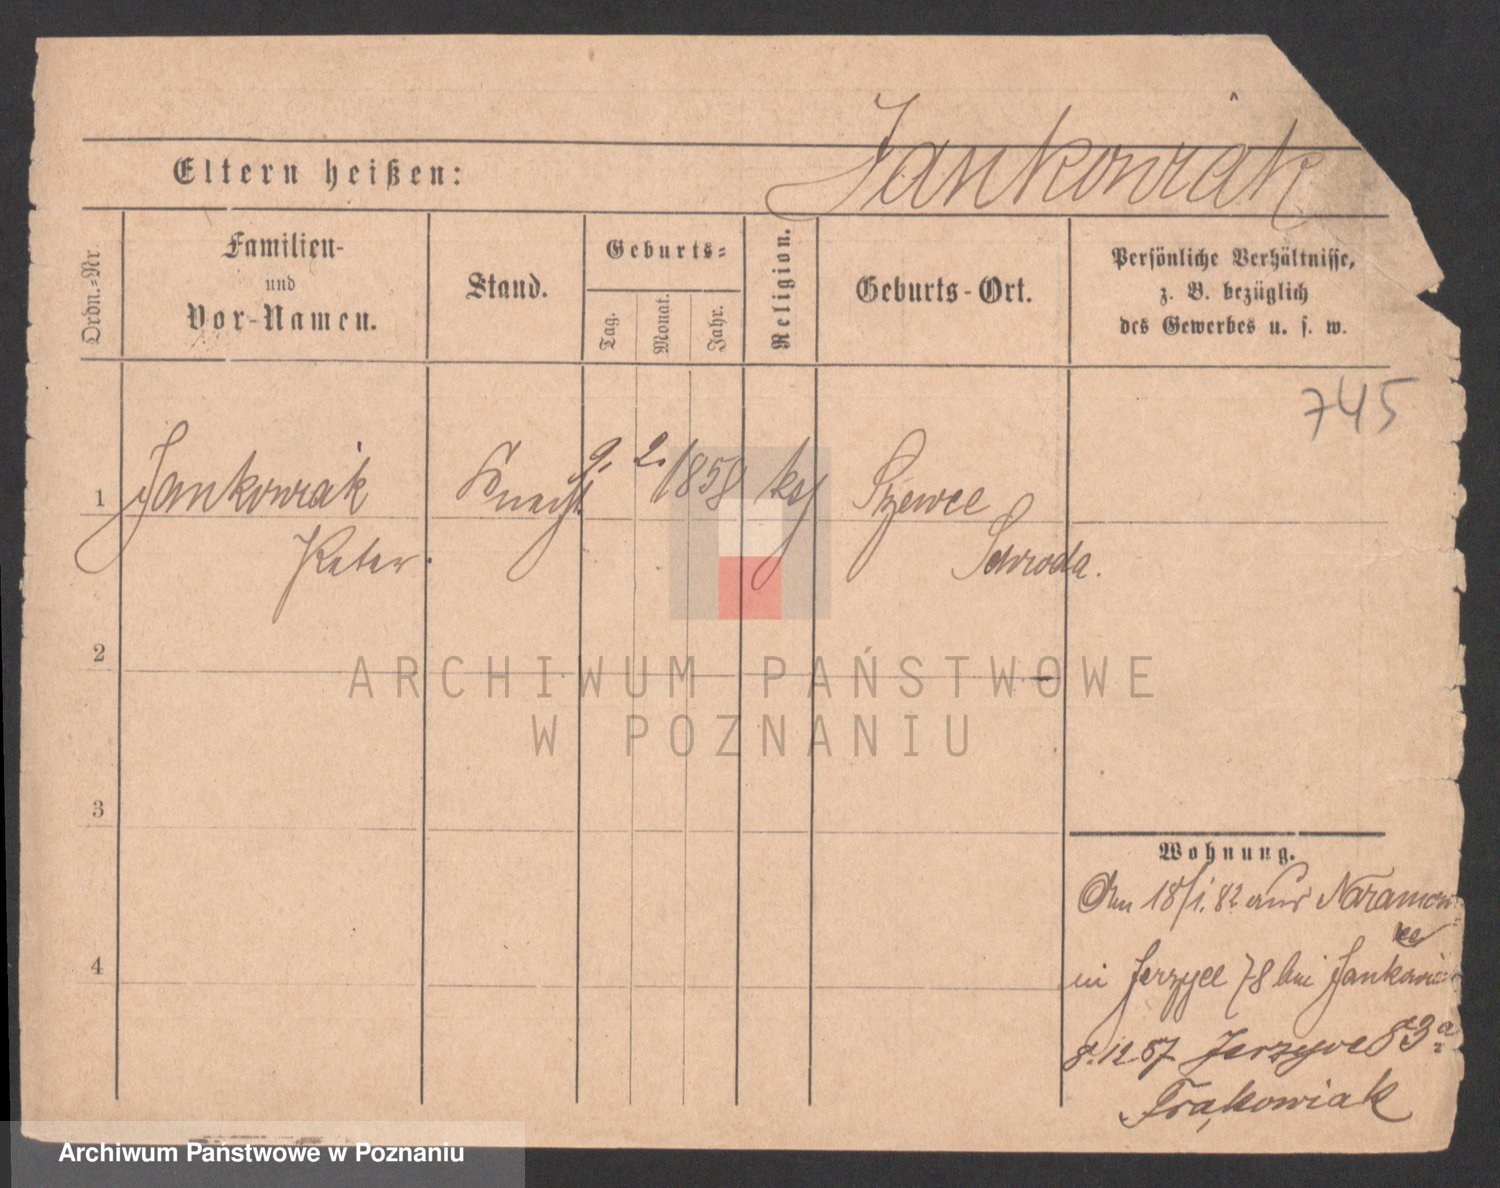 Jankowiak
Eltern heißen:
Ordn.-Nr.
Familien-
und
Vor-Namen.
Stand.
Geburts-
Tag.
Monat.
Jahr.
Religion.
Geburts-Ort.
Persönliche Verhältnisse,
z. B. bezüglich
des Gewerbes u. s. w.
745
1 Jankowiak Knecht 9. 2. 1858 kat Szewce
Peter. Schroda.
2
3
4
Wohnung.
Am 18/1. 82 aus Naramow-
ice
in Jerzyce 78 bei Jankowi
8.12.87 Jerzyce 83a
Frąkowiak
ARCHIWUM PAŃSTWOWE
W POZNANIU
Archiwum Państwowe w Poznaniu